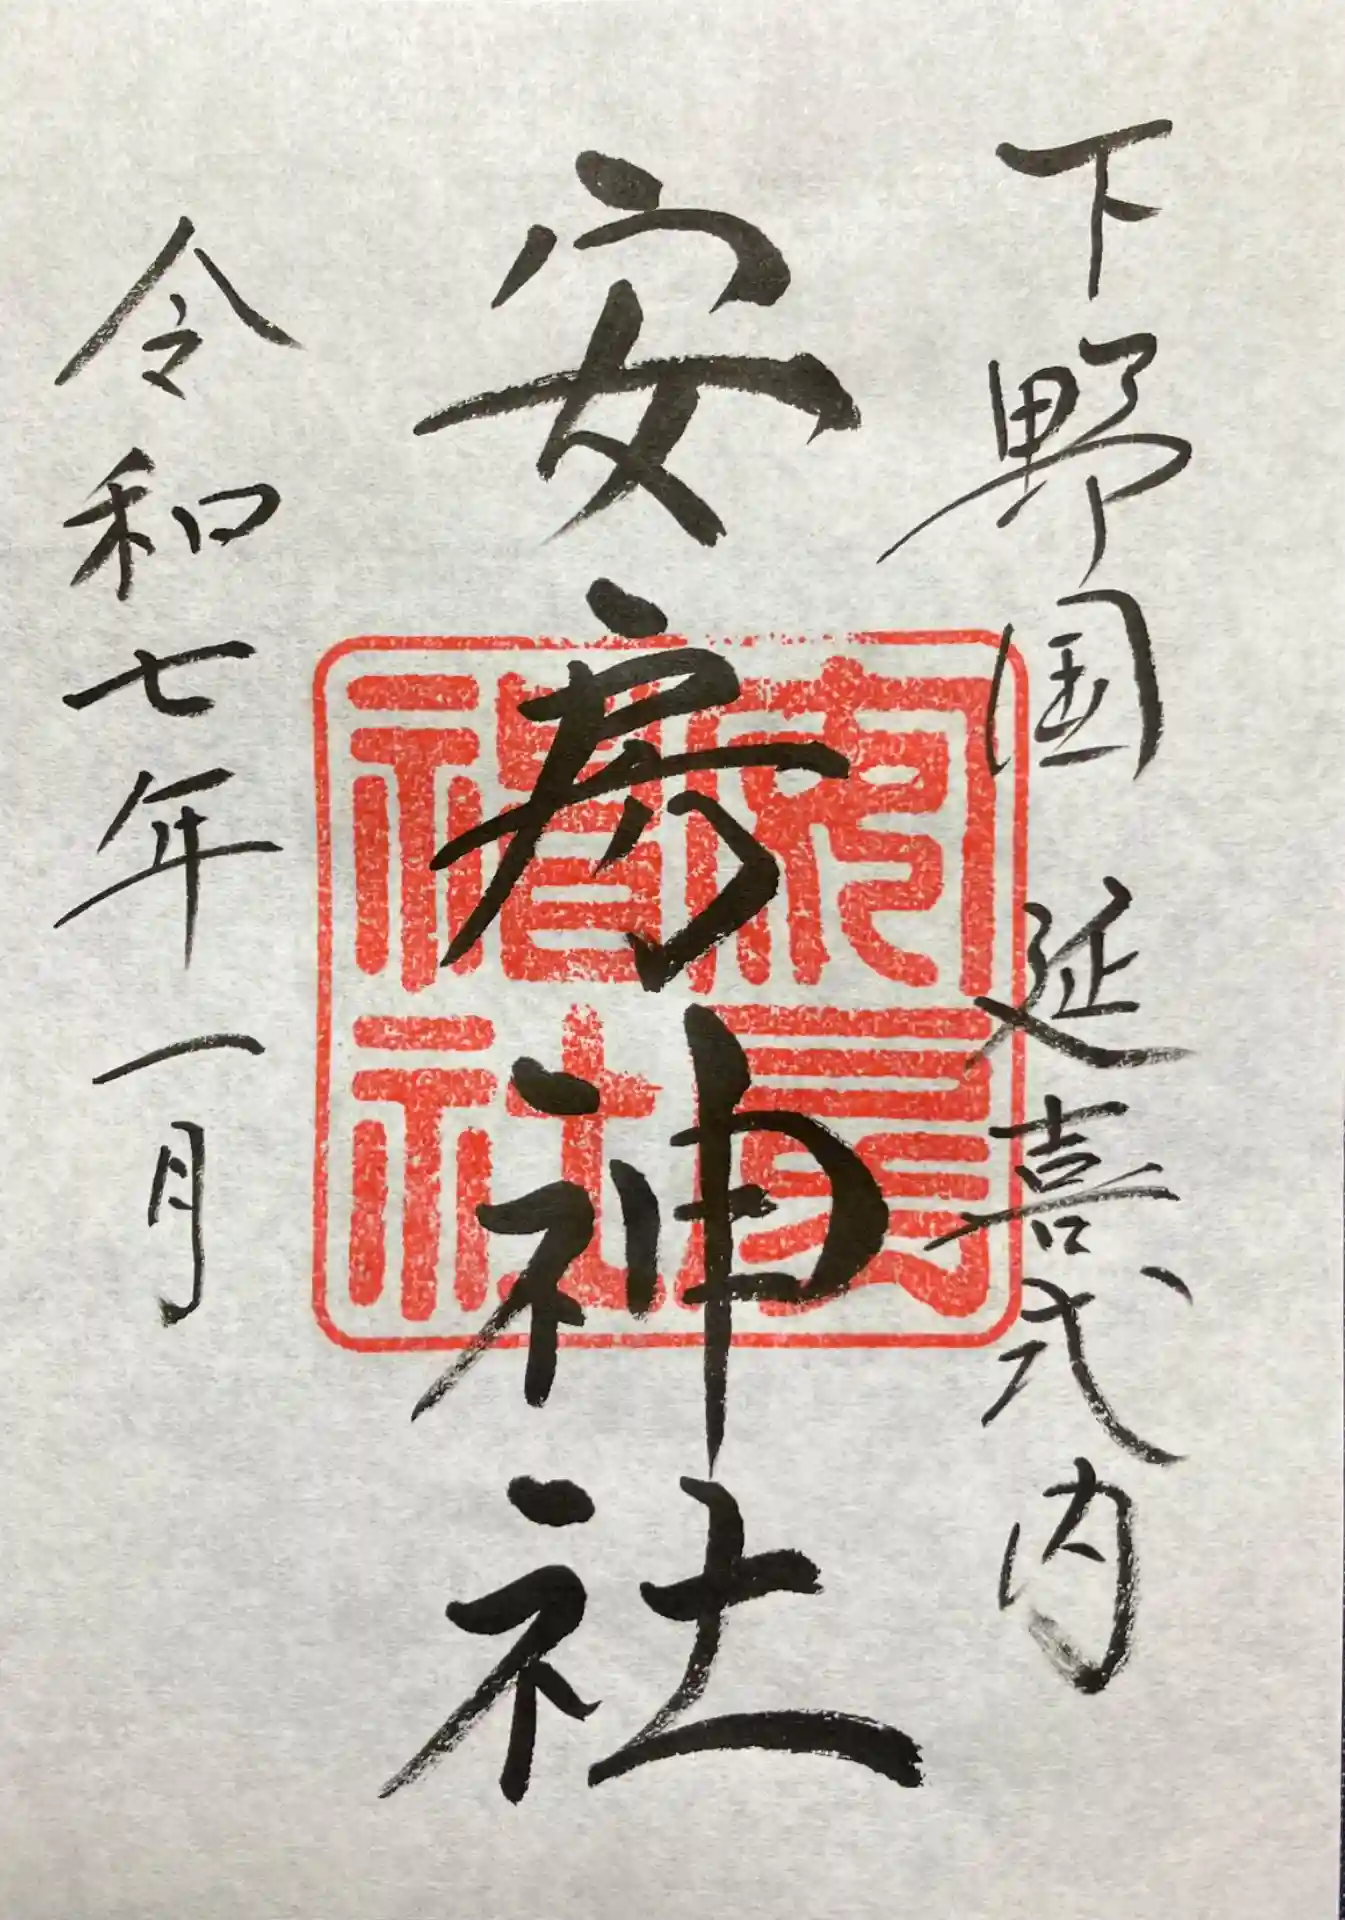 下野国 延喜式内
安房神社
令和七年一月
安房神社